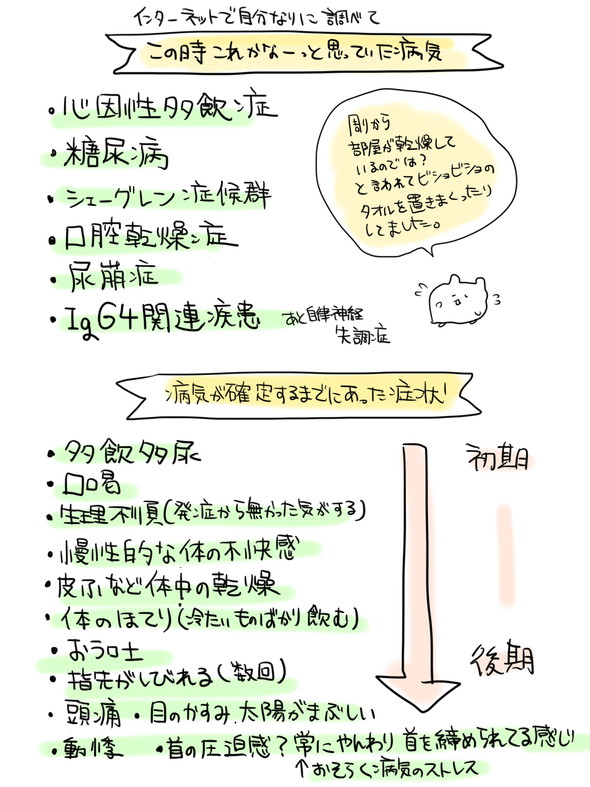 インターネットで自分なりに調べて
この時これかなーっと思っていた病気
・心因性多飲症
・糖尿病
・シェーグレン症候群
・口腔乾燥症
・尿崩症
・IgG4関連疾患 あと自律神経
失調症
周から
部屋が乾燥して
いるのでは?
と言われてビショビショの
タオルを置きまくったり
してました。
病気が確定するまでにあった症状
・多飲多尿
・口喝
・生理不順(発症から無かった気がする)
・慢性的な体の不快感
・皮ふなど体中の乾燥
・体のほてり(冷たいものばかり飲む)
・おう吐
・指先がしびれる(数回)
・頭痛・目のかすみ.太陽がまぶしい
・動悸 ・首の圧迫感?常にやんわり首を締められてる感じ
↑おそらく病気のストレス
初期
後期